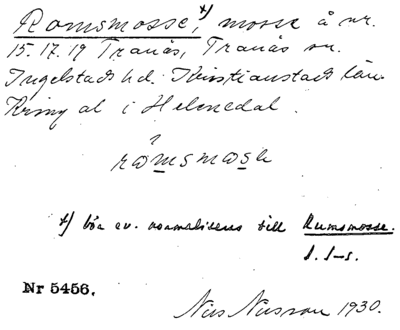 Romsmosse,*) mosse å nr.
15. 17. 19 Tranås, Tranås sn.
Ingelstads hd. Kristianstads län
Kring al i Helenedal.
*) bör ev. normaliseras till Rumsmosse.
Nr 5456.
Nils Nilsson 1930.